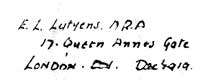 E. L. Lutyens. A.R.A
17. Queen Annes Gate
London. Dec 1919.